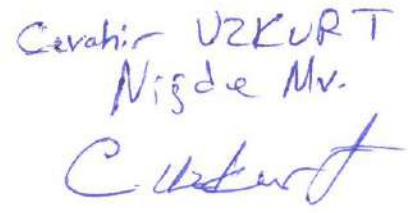 Cevahir UZKURT
Niğde Mv.
C. Uzkurt